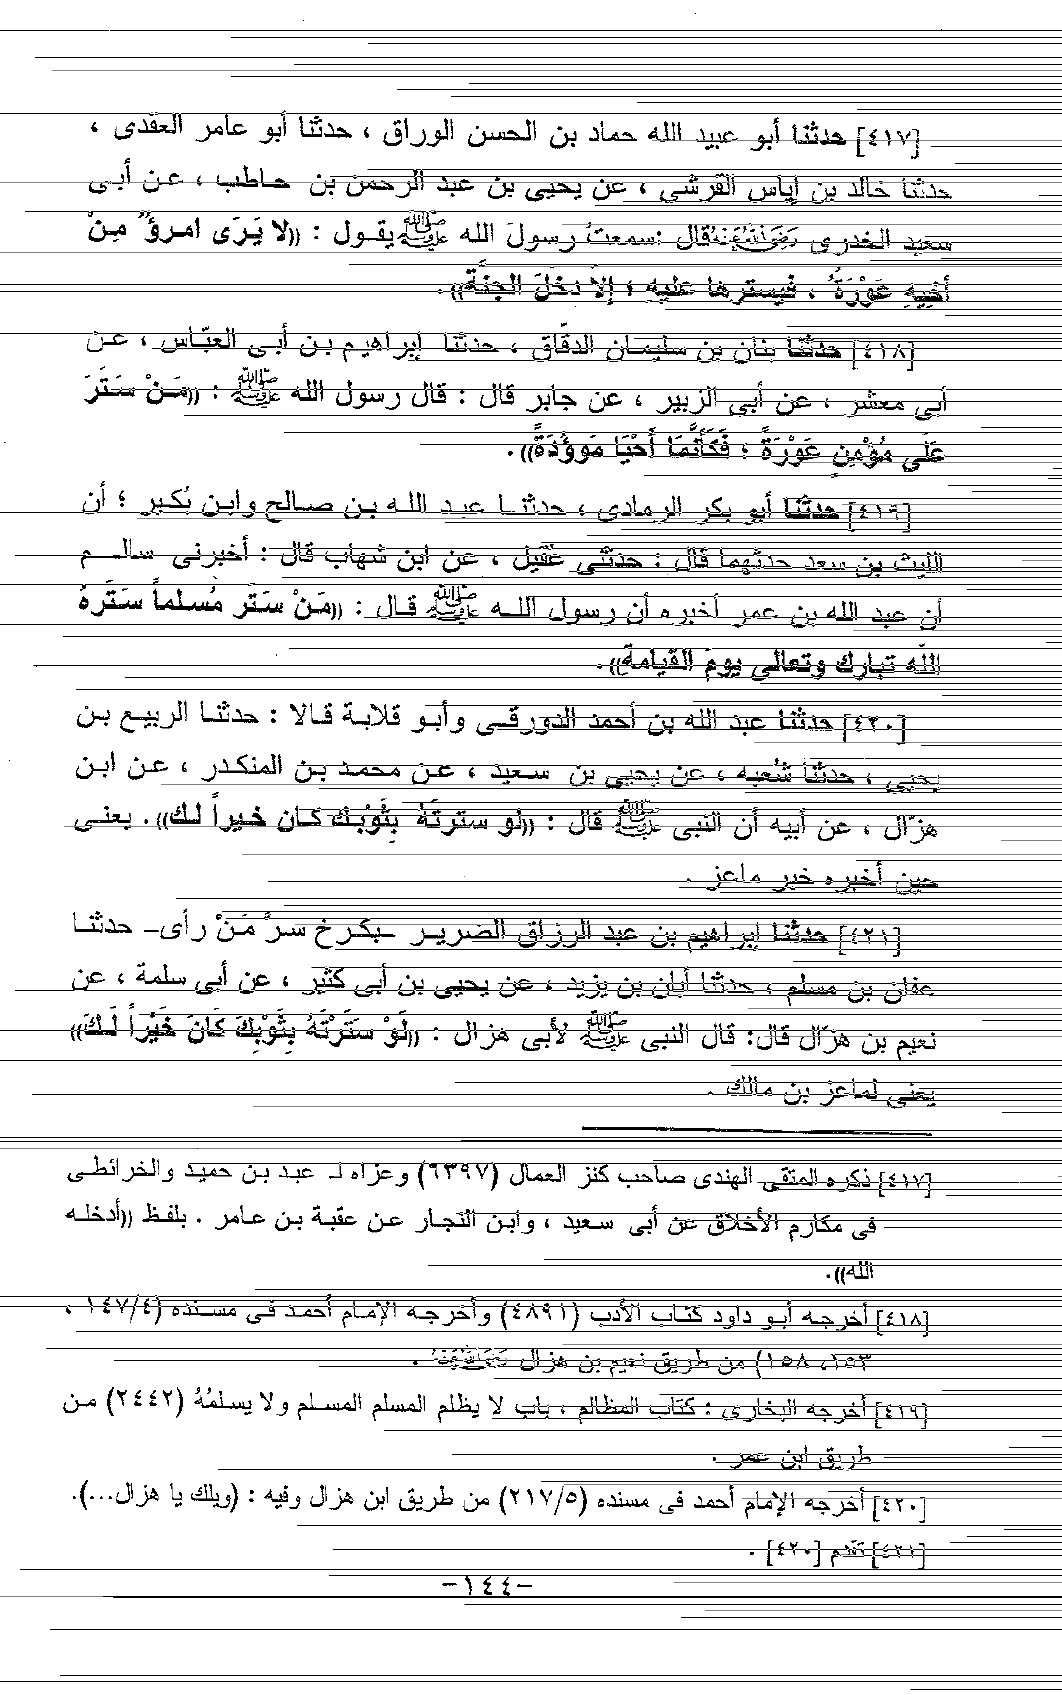 [٤١٧] حدثنا أبو عبيد الله حماد بن الحسن الوراق ، حدثنا أبو عامر العقدى ،
حدثنا خالد بن إياس القرشى ، عن يحيى بن عبد الرحمن بن حاطب ، عن أبى
سعيد الخدرى رضي الله عنه قال :سمعت رسول الله ﷺ يقول : ((لا يَرَى امرؤٌ مِنْ
أخيهِ عَوْرَةً ، فيسترها عليه ؛ إلاَّ دخَلَ الجنَّة)).
[٤١٨] حدثنا بنان بن سليمان الدقَّاق ، حدثنا إبراهيم بن أبى العبَّاس ، عن
أبى معشر ، عن أبى الزبير ، عن جابر قال : قال رسول الله ﷺ : ((مَنْ سَتَرَ
عَلَى مُؤْمنٍ عَوْرَةً ؛ فَكَأَنَّمَا أَحْيَا مَوؤُدَةً)).
[٤١٩] حدثنا أبو بكر الرمادى ، حدثنا عبد الله بن صالح وابن بُكير ؛ أن
الليث بن سعد حدثهما قال : حدثنى عُقيل ، عن ابن شهاب قال : أخبرنى سالم
أن عبد الله بن عمر أخبره أن رسول الله ﷺ قال : ((مَنْ سَتَر مُسلماً سَتَرهُ
اللَّه تبارك وتعالى يومَ القيامة)).
[٤٢٠] حدثنا عبد الله بن أحمد الدورقى وأبو قلابة قالا : حدثنا الربيع بن
يحيى ، حدثنا شُعبه ، عن يحيى بن سعيد ، عن محمد بن المنكدر ، عن ابن
هزّال ، عن أبيه أن النبى ﷺ قال : ((لو سترتَهُ بثَوْبِكَ كان خيراً لك)). يعنى
حين أخبره خبر ماعز .
[٤٢١] حدثنا إبراهيم بن عبد الرزاق الضرير -بكرخ سرَّ مَنْ رأى- حدثنا
عفان بن مسلم ، حدثنا أبان بن يزيد ، عن يحيى بن أبى كثير ، عن أبى سلمة ، عن
نعيم بن هزّال قال: قال النبى ﷺ لأبى هزال : ((لَوْ سَتَرْتَهُ بِثَوْبِكَ كَانَ خَيْراً لَكَ))
يعنى لماعز بن مالك .
[٤١٧] ذكره المتقى الهندى صاحب كنز العمال (٦٣٩٧) وعزاه لـ عبد بن حميد والخرائطى
فى مكارم الأخلاق عن أبى سعيد ، وابن النجار عن عقبة بن عامر . بلفظ ((أدخله
الله)).
[٤١٨] أخرجه أبو داود كتاب الأدب (٤٨٩١) وأخرجه الإمام أحمد فى مسنده (١٤٧/٤ ،
١٥٣، ١٥٨) من طريق نعيم بن هزال رضي الله عنه .
[٤١٩] أخرجه البخارى : كتاب المظالم ، باب لا يظلم المسلم المسلم ولا يسلمُهُ (٢٤٤٢) من
طريق ابن عمر .
[٤٢٠] أخرجه الإمام أحمد فى مسنده (٢١٧/٥) من طريق ابن هزال وفيه : (ويلك يا هزال...).
[٤٢١] تقدم [٤٢٠] .
-١٤٤-